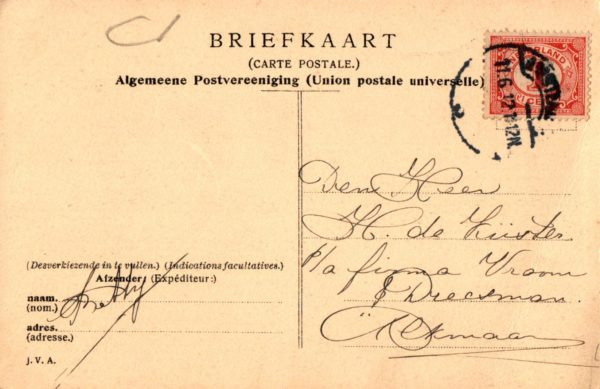 BRIEFKAART
(CARTE POSTALE.)
Algemeene Postvereeniging (Union postale universelle)
NEDERLAND
1 CENT
11.6.12 11-12N.
Den Heer
H. de Küster
p/a firma Vroom
& Dreesman.
Alkmaar
(Desverkiezende in te vullen.) (Indications facultatives.)
Afzender (Expéditeur:)
naam.
(nom.)
adres.
(adresse.)
J. V. A.